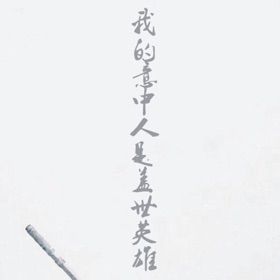 我的意中人是盖世英雄